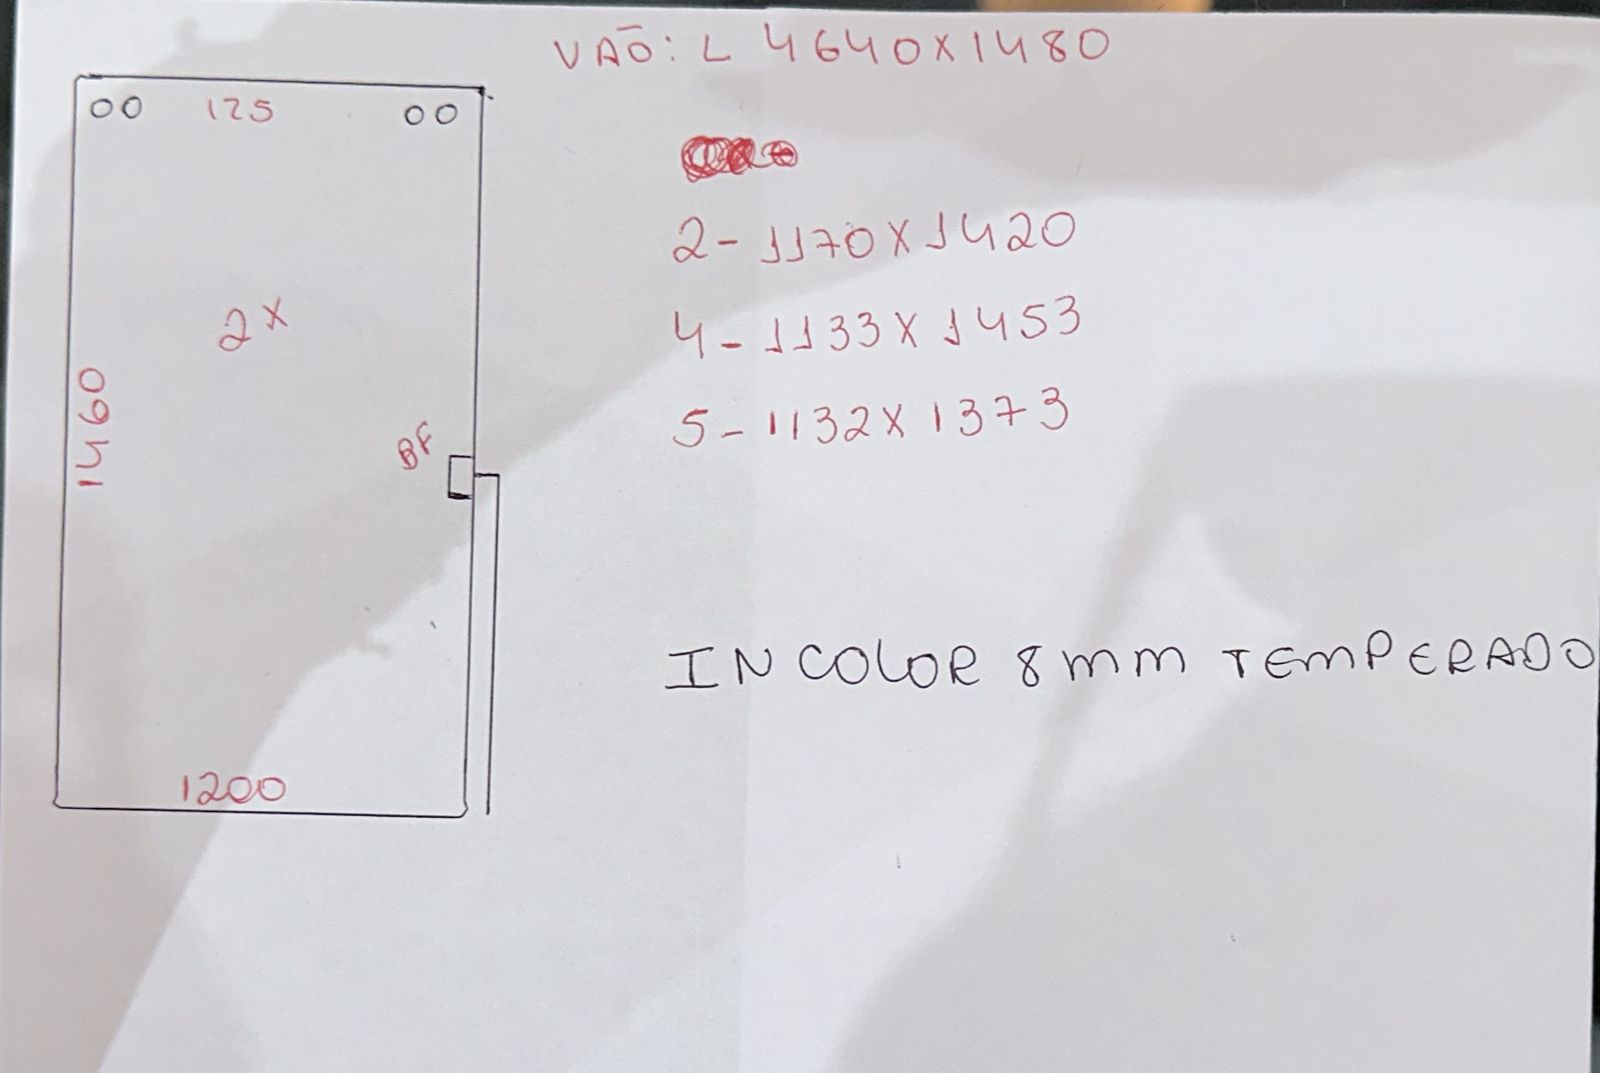 VÃO: L 4640X1480
00 125 00
2-1170X1420
2X
4-1133X1453
1460
BF
5-1132X1373
INCOLOR 8mm TEMPERADO
1200